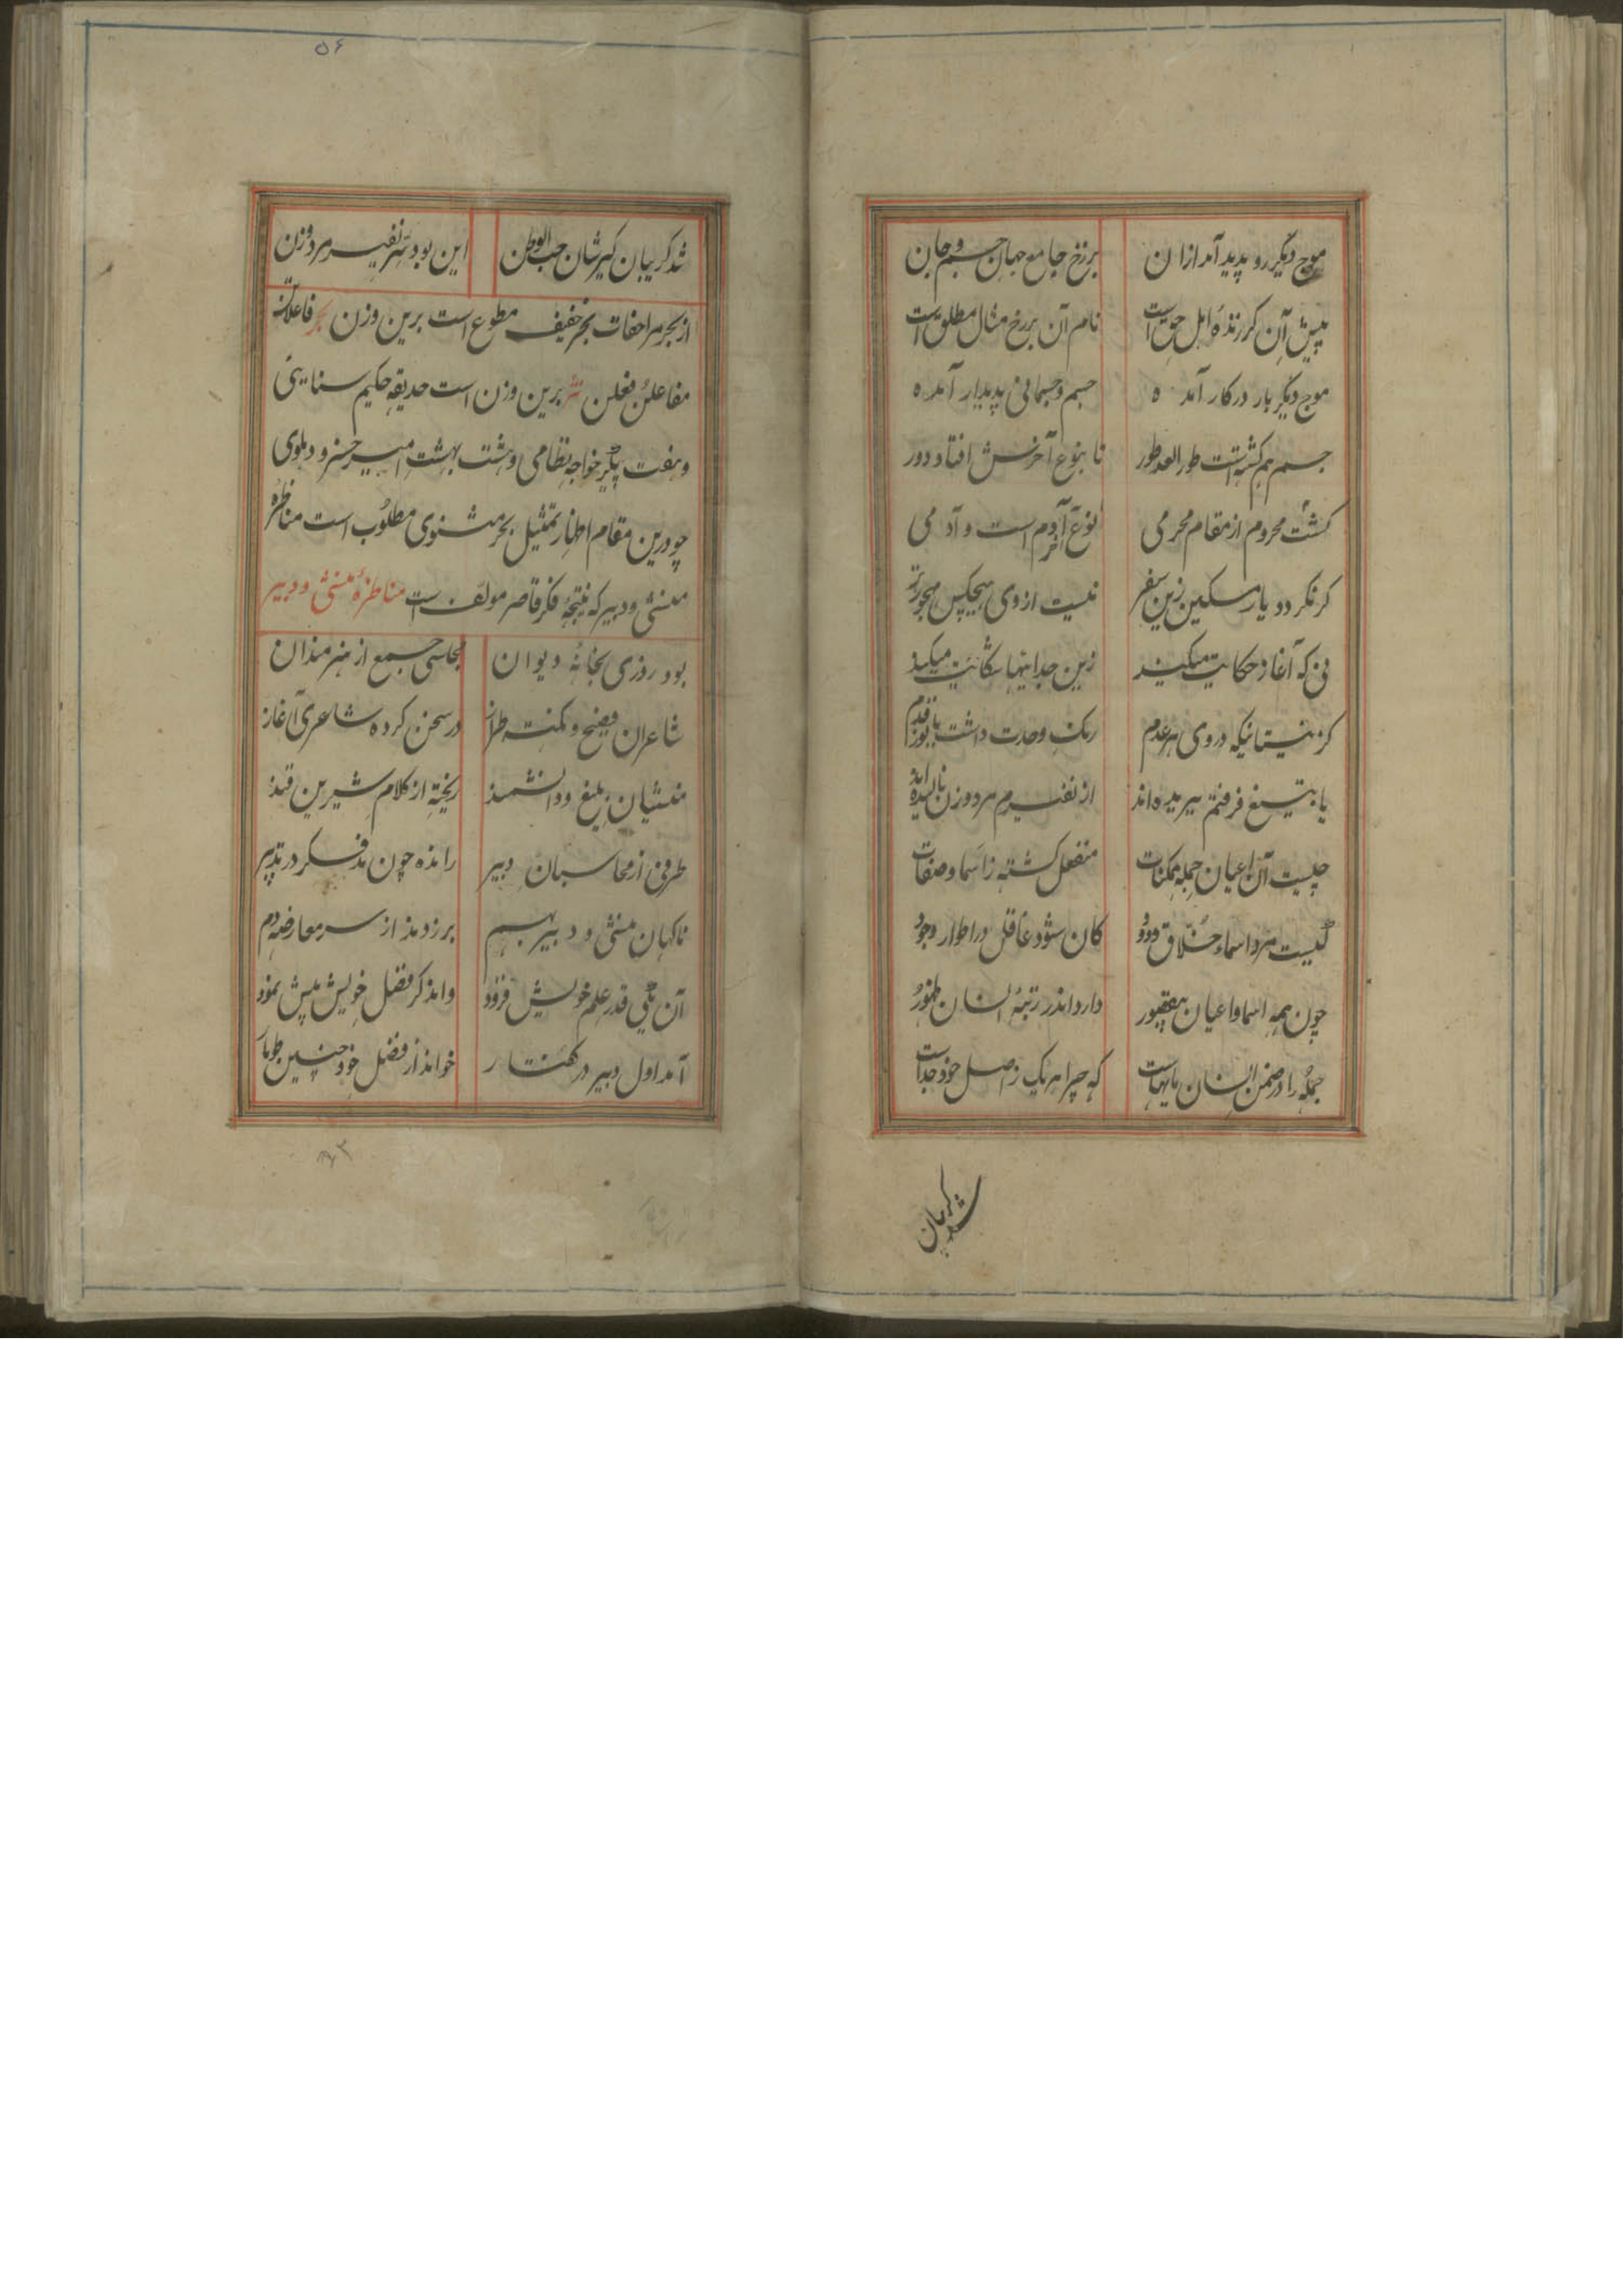 موج دیگر رو پدید آمد ازان برزخ جامع جهان جسم و جان
پیش آن کز زندهٔ اهل حق است نام آن برزخ مثال مطلق است
موج دیگر بار در کار آمده جسم و جسمانی پدیدار آمده
جسم هم گشته است طورا بعد طور تا بنوع آخرش افتاد دور
نوع آخر آدم است و آدمی گشت محروم از مقام محرمی
گر نگردد باز مسکین زین سفر نیست از وی هیچکس مهجورتر
نی که آغاز حکایت میکند زین جداییها شکایت میکند
کز نیستانیکه در وی هر عدم رنک وحدت داشت با نور قدم
تا بتیغ فرقتم ببریده‌اند از نفیرم مرد و زن نالیده‌اند
چیست آن اعیان جمله ممکنات منفعل گشته ز اسما و صفات
کیست مرد اسماء خلاق ودود کان شود فاعل در اطوار وجود
چون همه اسما و اعیان بیقصور دارد اندر رتبهٔ انسان ظهور
جمله را در ضمن انسان ناله‌هاست که چرا هر یک ز اصل خود جداست
شد کریبان
۵۶
شد کریبان کیر شان حب الوطن این بود سر نفیر مرد و زن
از بحر مزاحفات بحر خفیف مطبوع است برین وزن بحر فاعلاتن
مفاعلن فعلن نثر برین وزن است حدیقهٔ حکیم سنایی
و هفت پیکر خواجه نظامی و هشت بهشت امیر خسرو دهلوی
چو درین مقام اظهار تمثیل بحر مثنوی مطلوب است مناظرهٔ
منشی و دبیر که نتیجهٔ فکر قاصر مولف است مناظرهٔ منشی و دبیر
بود روزی بخانهٔ دیوان مجلسی جمع از هنرمندان
شاعران فصیح و نکته طراز در سخن کرده شاعری آغاز
منشیان بلیغ و دانشمند ریخته از کلام شیرین قند
طرفی از محاسبان دبیر رانده چون مد فکر در تدبیر
ناکهان منشی و دبیر بهم بر زدند از سر معارضه دم
آن یکی قدر علم خویش فزود وان دکر فضل خویش پیش نمود
آمد اول دبیر در گفتار خواند از فضل خود چنین طومار